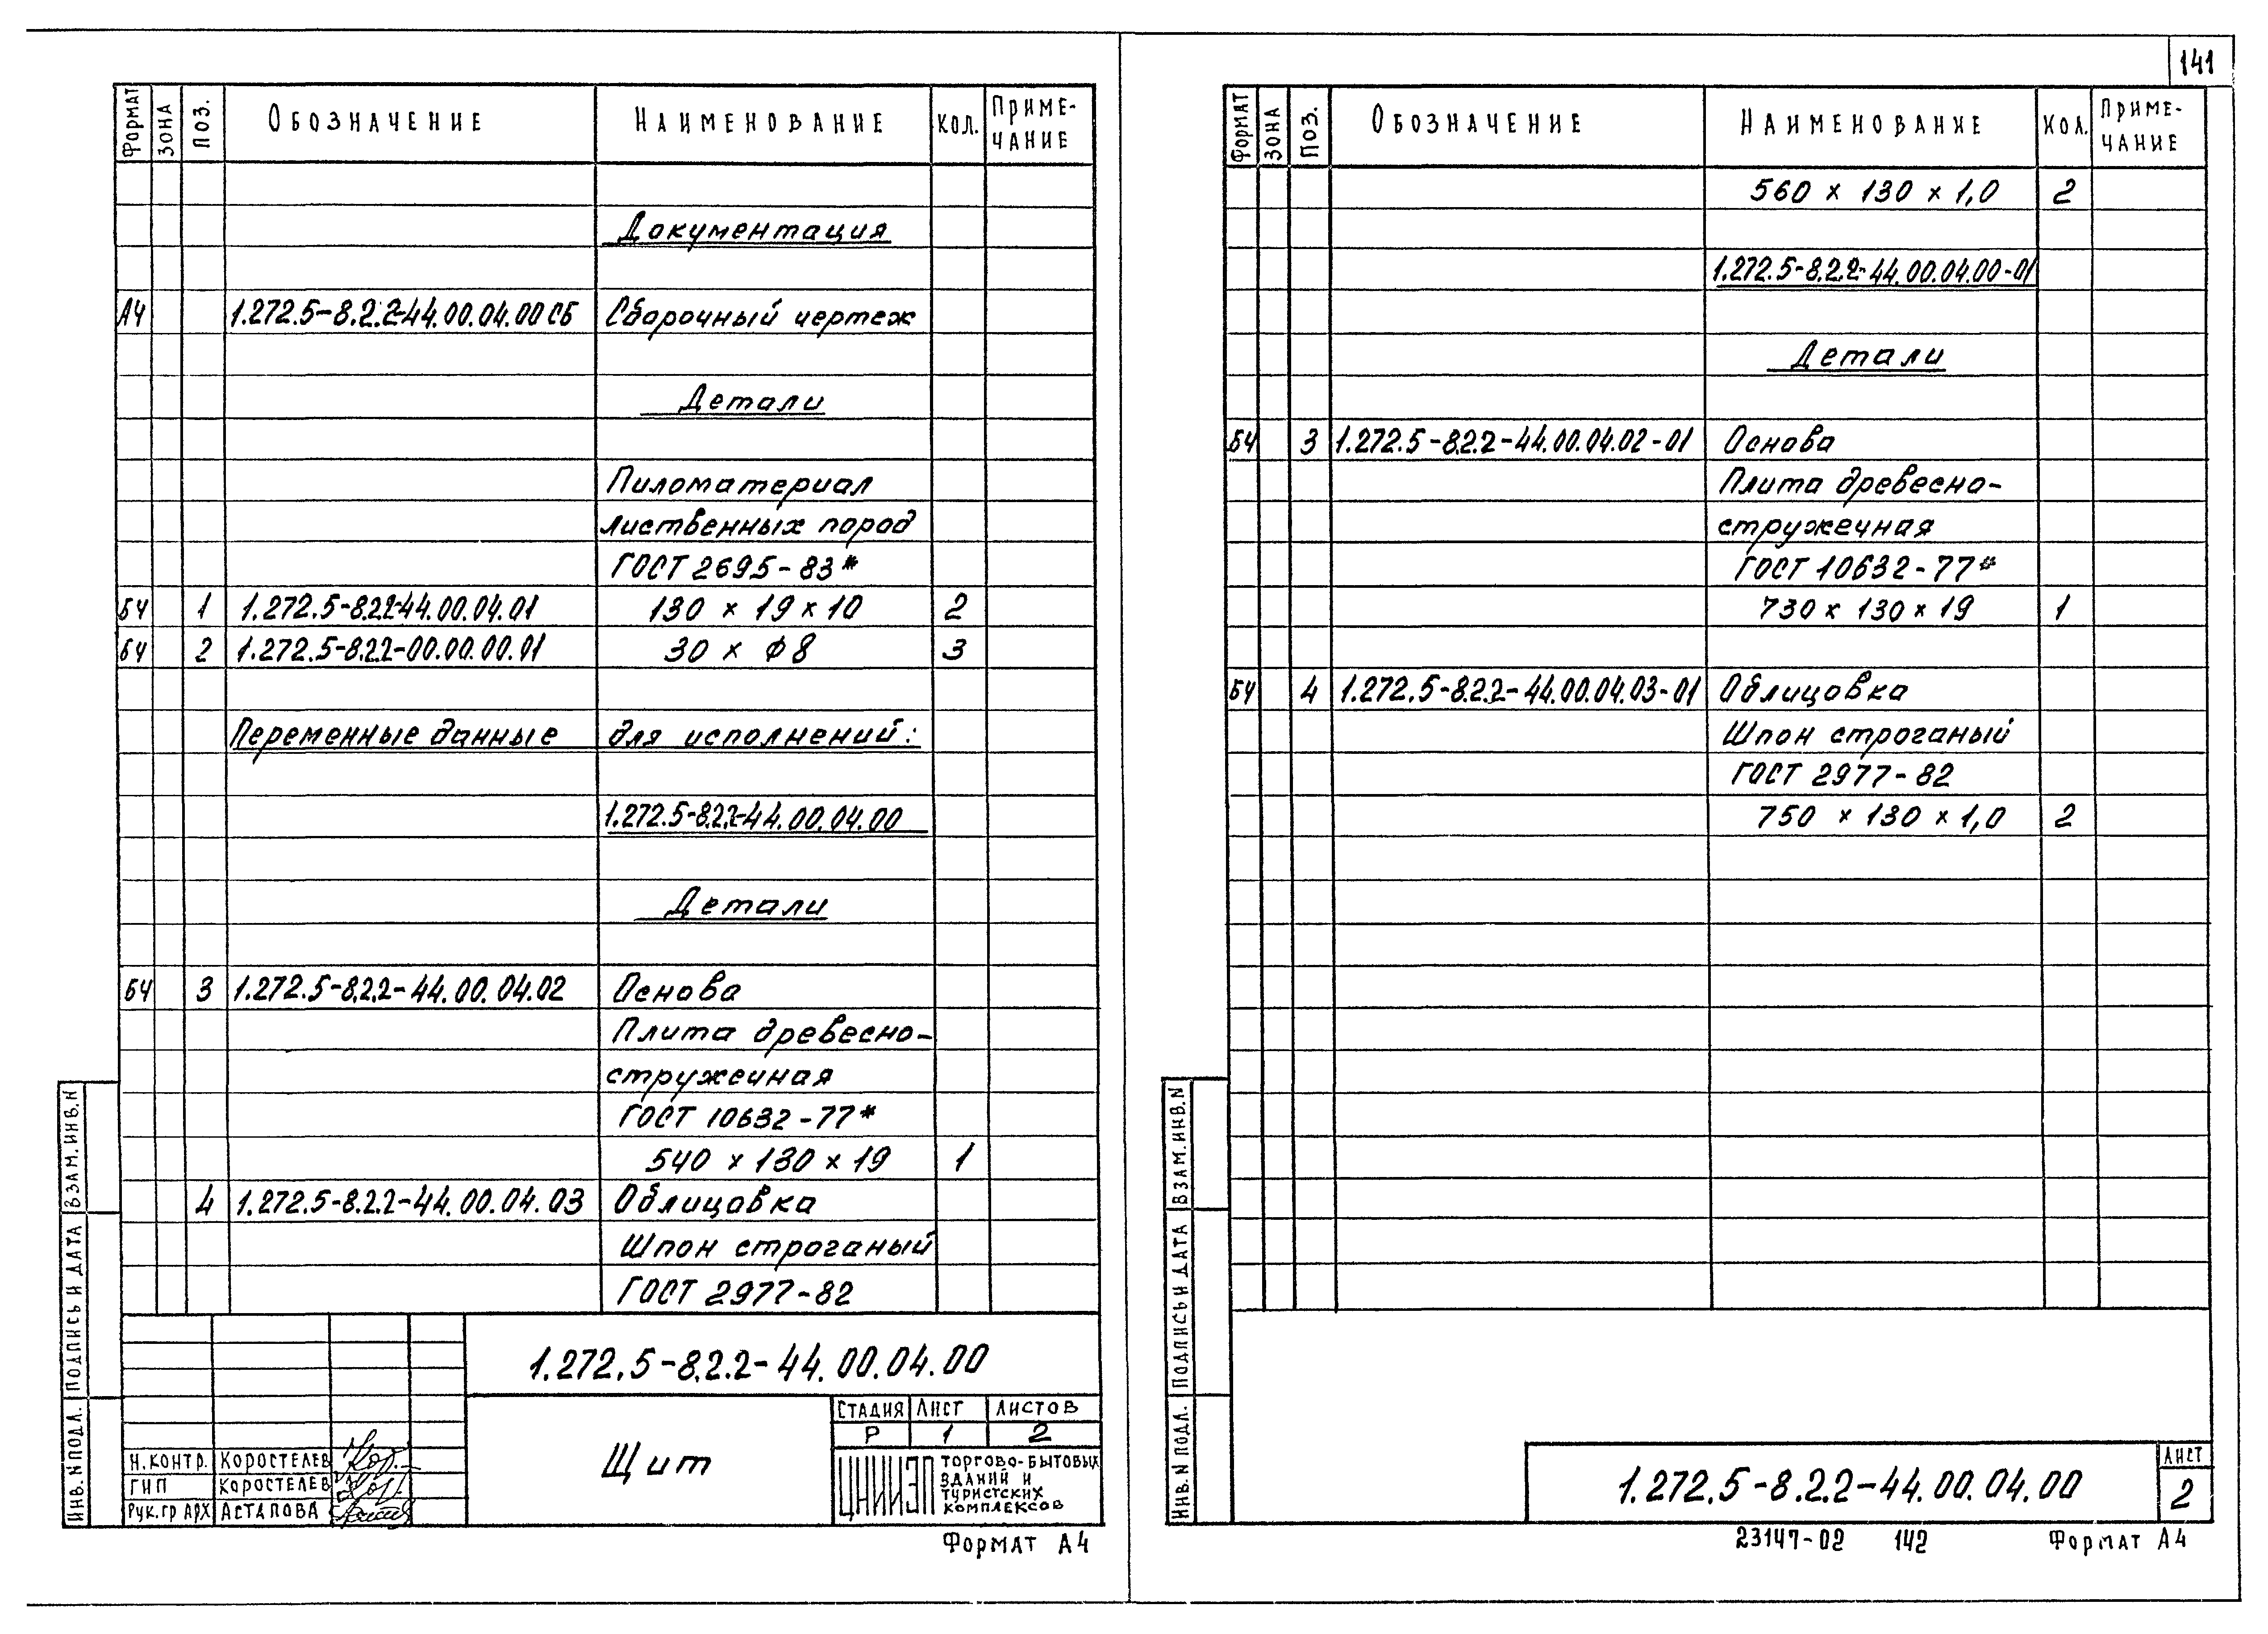 141
Формат Зона Поз. Обозначение Наименование Кол. Приме-
чание
Документация
А4 1.272.5-8.2.2-44.00.04.00 СБ Сборочный чертеж
Детали
Пиломатериал
лиственных пород
ГОСТ 2695-83*
БЧ 1 1.272.5-8.2.2-44.00.04.01 130 × 19 × 10 2
БЧ 2 1.272.5-8.2.2-00.00.00.01 30 × ф8 3
Переменные данные для исполнений:
1.272.5-8.2.2-44.00.04.00
Детали
БЧ 3 1.272.5-8.2.2-44.00.04.02 Основа
Плита древесно-
стружечная
ГОСТ 10632-77*
540 × 130 × 19 1
4 1.272.5-8.2.2-44.00.04.03 Облицовка
Шпон строганый
ГОСТ 2977-82
1.272.5-8.2.2-44.00.04.00
Стадия Лист Листов
Р 1 2
Щит
Н.контр. Коростелев
ГИП Коростелев
Рук.гр арх Астапова
ЦНИИЭП
торгово-бытовых
зданий и
туристских
комплексов
Инв.N подл. Подпись и дата Взам.инв.N
Формат А4
Формат Зона Поз. Обозначение Наименование Кол. Приме-
чание
560 × 130 × 1,0 2
1.272.5-8.2.2-44.00.04.00-01
Детали
БЧ 3 1.272.5-8.2.2-44.00.04.02-01 Основа
Плита древесно-
стружечная
ГОСТ 10632-77*
730 × 130 × 19 1
БЧ 4 1.272.5-8.2.2-44.00.04.03-01 Облицовка
Шпон строганый
ГОСТ 2977-82
750 × 130 × 1,0 2
Инв.N подл. Подпись и дата Взам.инв.N
1.272.5-8.2.2-44.00.04.00
Лист
2
23147-02 142 Формат А4